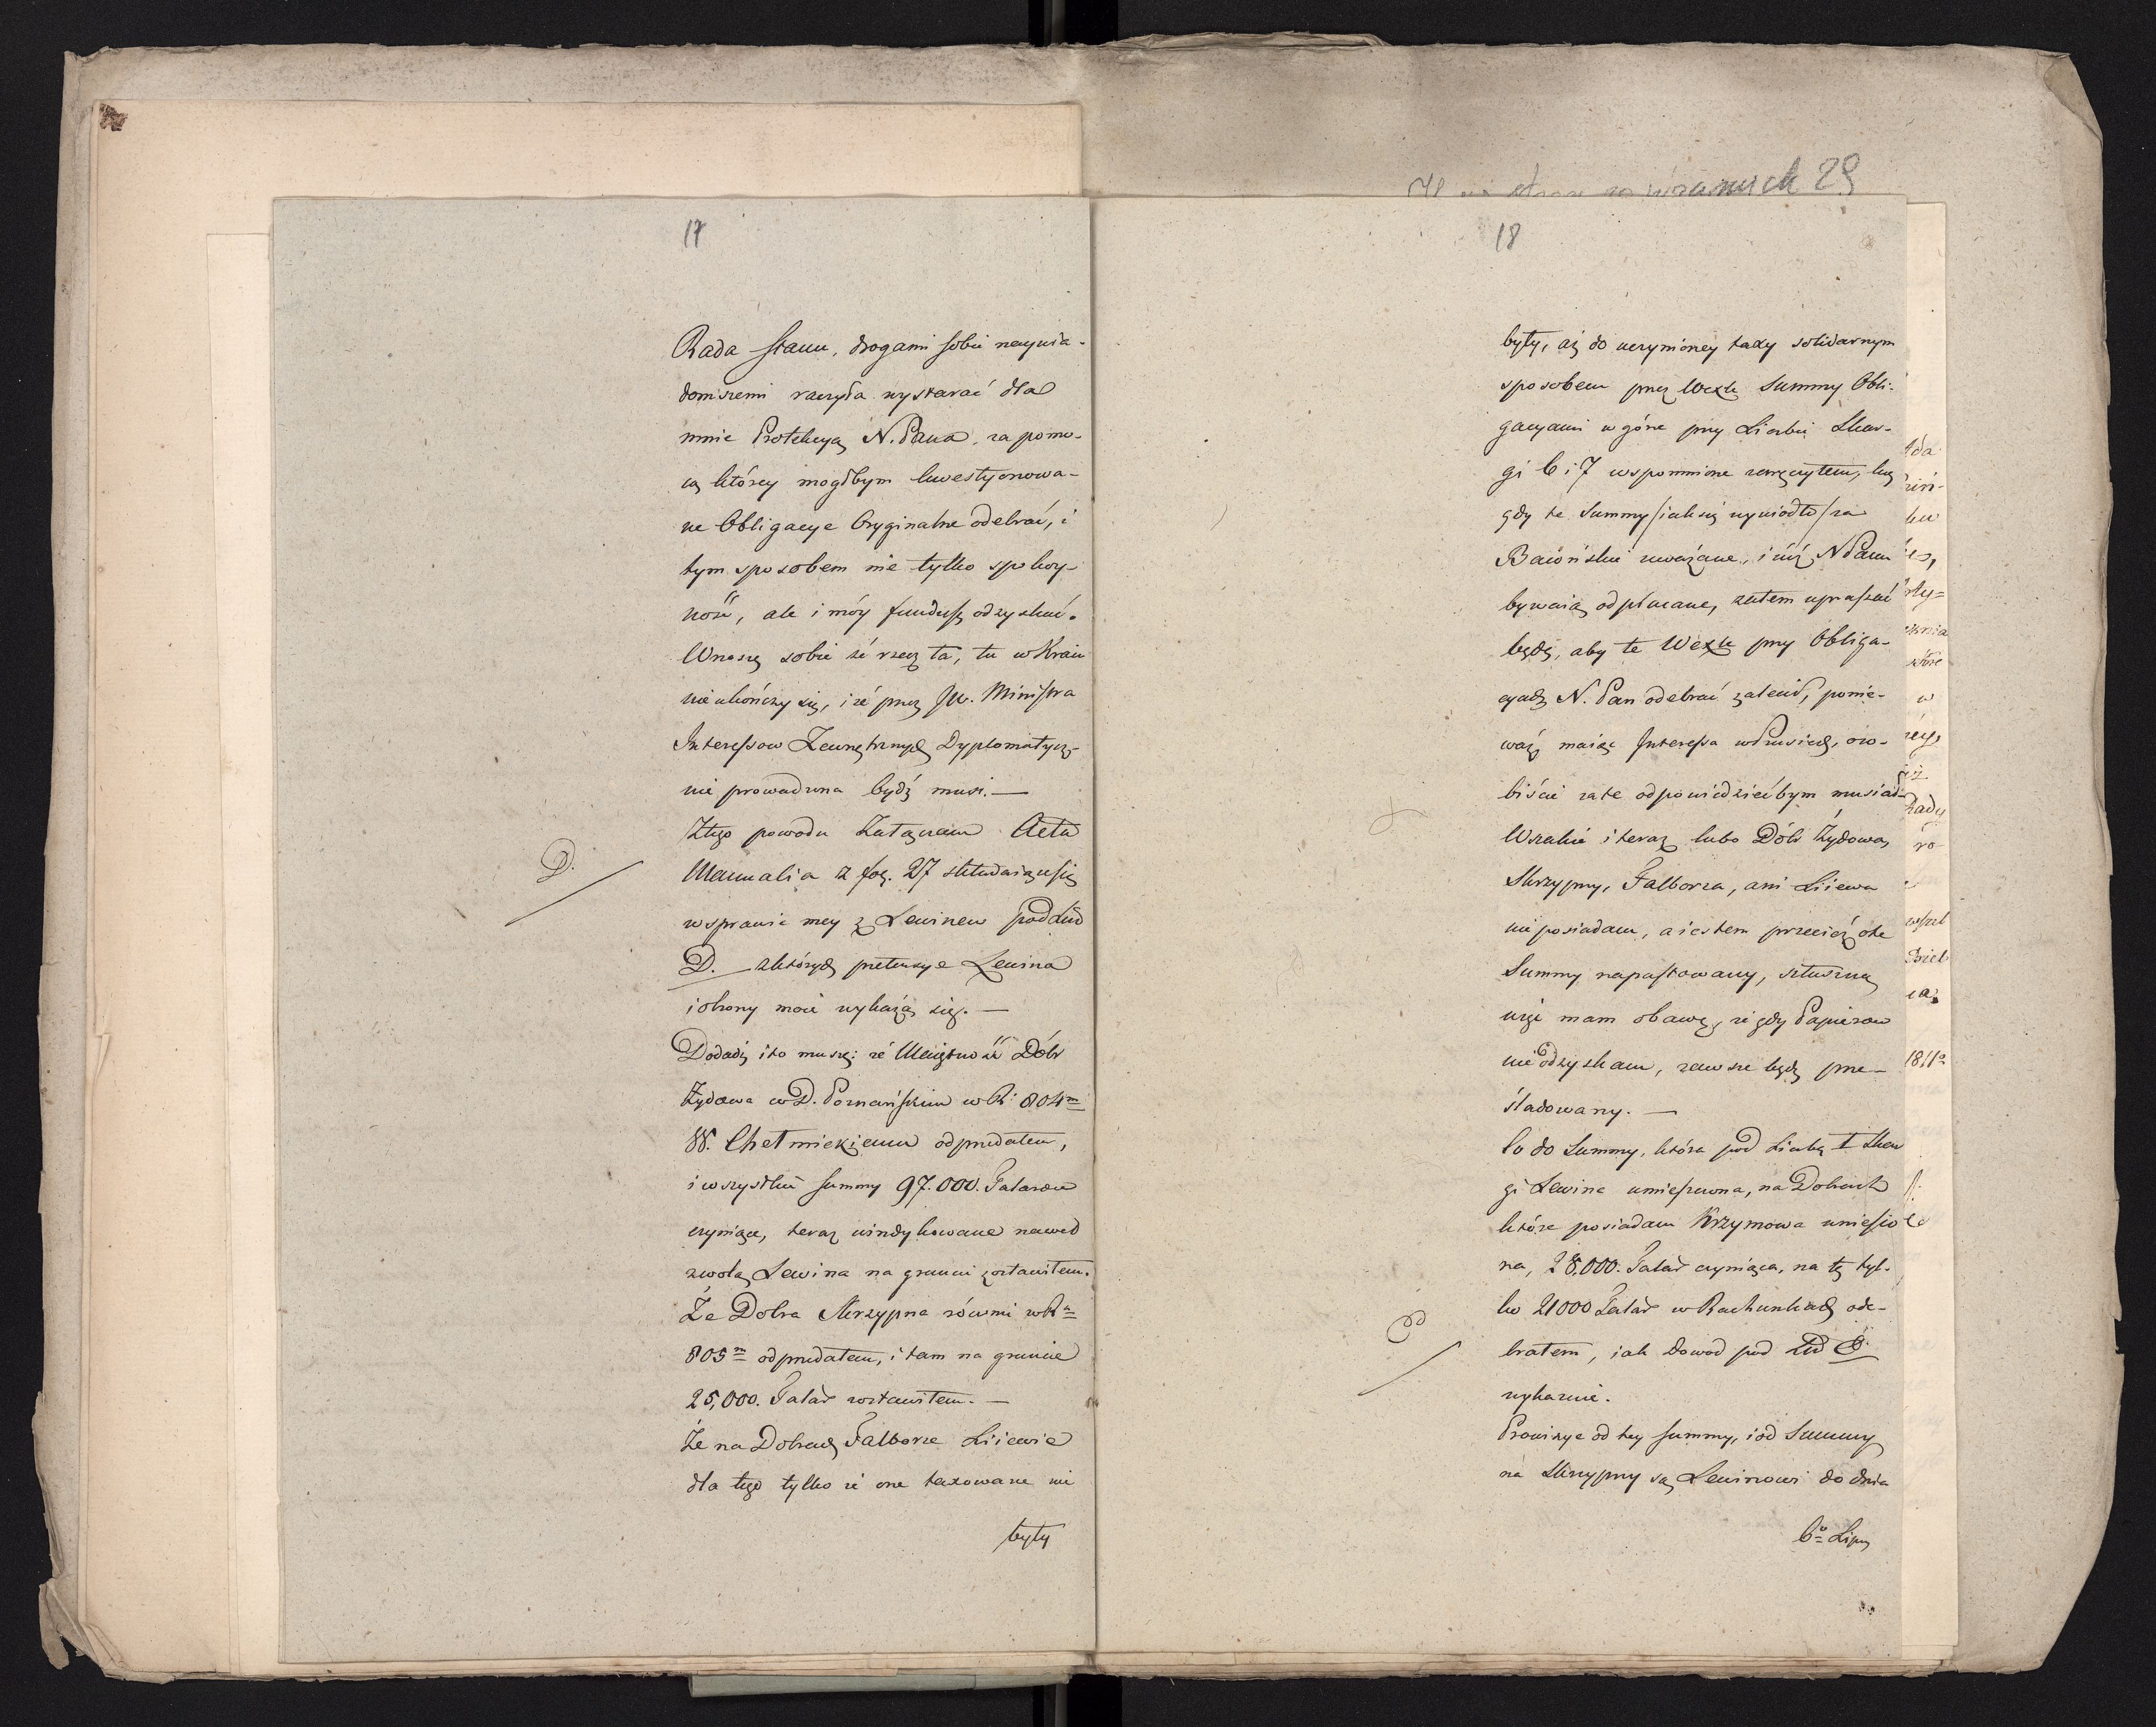 29
17
Rada Stanu, drogami sobie naywia-
domszemi raczyła wystarać dla
mnie Protekcyą N. Pana, za pomo-
cą którey mogłbym kwestyonowa-
ne Obligacye Oryginalne odebrać, i
tym sposobem nie tylko spokoy-
ność, ale i móy fundusz odzyskać.
Wnoszę sobie że rzecz ta, tu w Kraiu
nie ukończy się, i że przez JW. Ministra
Interessow Zewnętrznych Dyplomatycz-
nie prowadzona bydź musi. —
Z tego powodu Załączam Acta
D.
Manualia z fol. 27 składaiące się
w sprawie mey z Lewinem pod Lit
D. z których pretensye Lewina
i obrony moie wykażą się. —
Dodadź i to muszę; że Maiętność Dóbr
Żydowa w D. Poznańskim w R: 804m
W. Chełmickiemu odprzedałem,
i wszystkie summy 97.000. Talarów
czyniące, teraz windykowane nawet
z wolą Lewina na gruncie zostawiłem.
Że Dobra Skrzypna równie w Ru
805m odprzedałem, i tam na gruncie
25,000. Talar zostawiłem. —
Że na Dobrach Falborze Liiewie
dla tego tylko że one taxowane nie
były
18
były, aż do uczynioney taxy solidarnym
sposobem przez Wexle Summy Obli-
gacyami w górze przy Liczbie Skar-
gi 6 i 7 wspomnione zaręczyłem, lecz
gdy te Summy /iak się wywiodło/ za
Baiońskie uważane, i iuż N Panu
bywaią odpłacane, zatem upraszać
będę, aby te Wexle przy Obliga-
cyach N. Pan odebrać zalecił, ponie-
waż maiąc Interessa w Prusiech, oso-
biście za te odpowiedziećbym musiał.
Wszakże i teraz lubo Dóbr Żydowa,
Skrzypny, Falborza, ani Liiewa
nie posiadam, a iestem przecież o te
Summy napastowany, słuszną
więc mam obawę, że gdy Papierow
nie odzyskam, zawsze będę prze-
śladowany. —
Co do Summy, która pod Liczbą 1 Skar
gi Lewina umieszczona, na Dobrach
które posiadam Krzymowa wniesio
na, 28.000. Talar czyniąca, na tę tyl-
ko 21000 Talar w Rachunkach ode-
brałem, iak dowod pod Lit E.
wykazuie.
Prowizye od tey summy, i od Summy
na Skrzypny są Lewinowi do dnia
6o Lipca